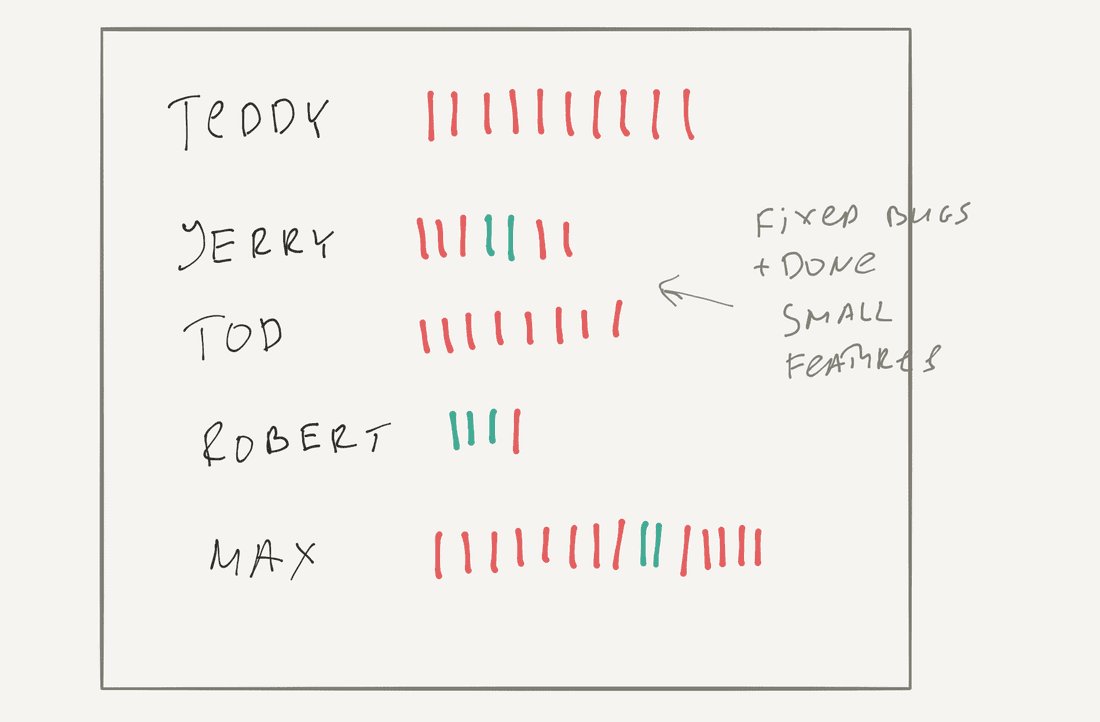 TeDDY
JERRY
TOD
ROBERT
MAX
FiXED BUGS
+ DONe
SMALL
FeATURES